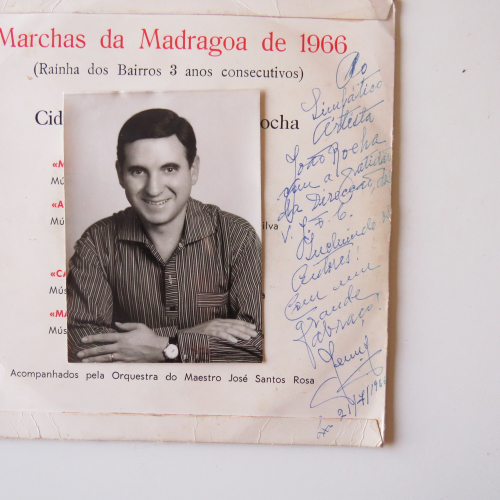 Marchas da Madragoa de 1966
(Rainha dos Bairros 3 anos consecutivos)
Cid ocha
«M
Mús
«A
Mús ilva
«CA
Mús
«MA
Mús
Acompanhados pela Orquestra do Maestro José Santos Rosa
Ao
Simpático
Artista
João Rocha
com a
da Direcção do
V. F. C.
Incluindo os
Autores!
Com um
grande
abraço!
21/7/1966